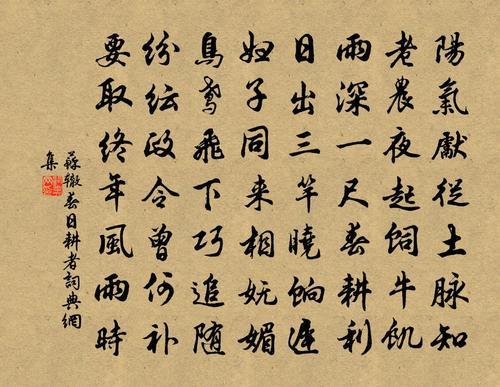 陽氣獻從土脈知
老農夜起飼牛飢
雨深一尺春耕利
日出三竿曉餉遲
妇子同来相妩媚
鳥鸢飛下巧追随
纷纭政令曾何补
要取終年風雨時
蘇轍春日耕者詞典網
集